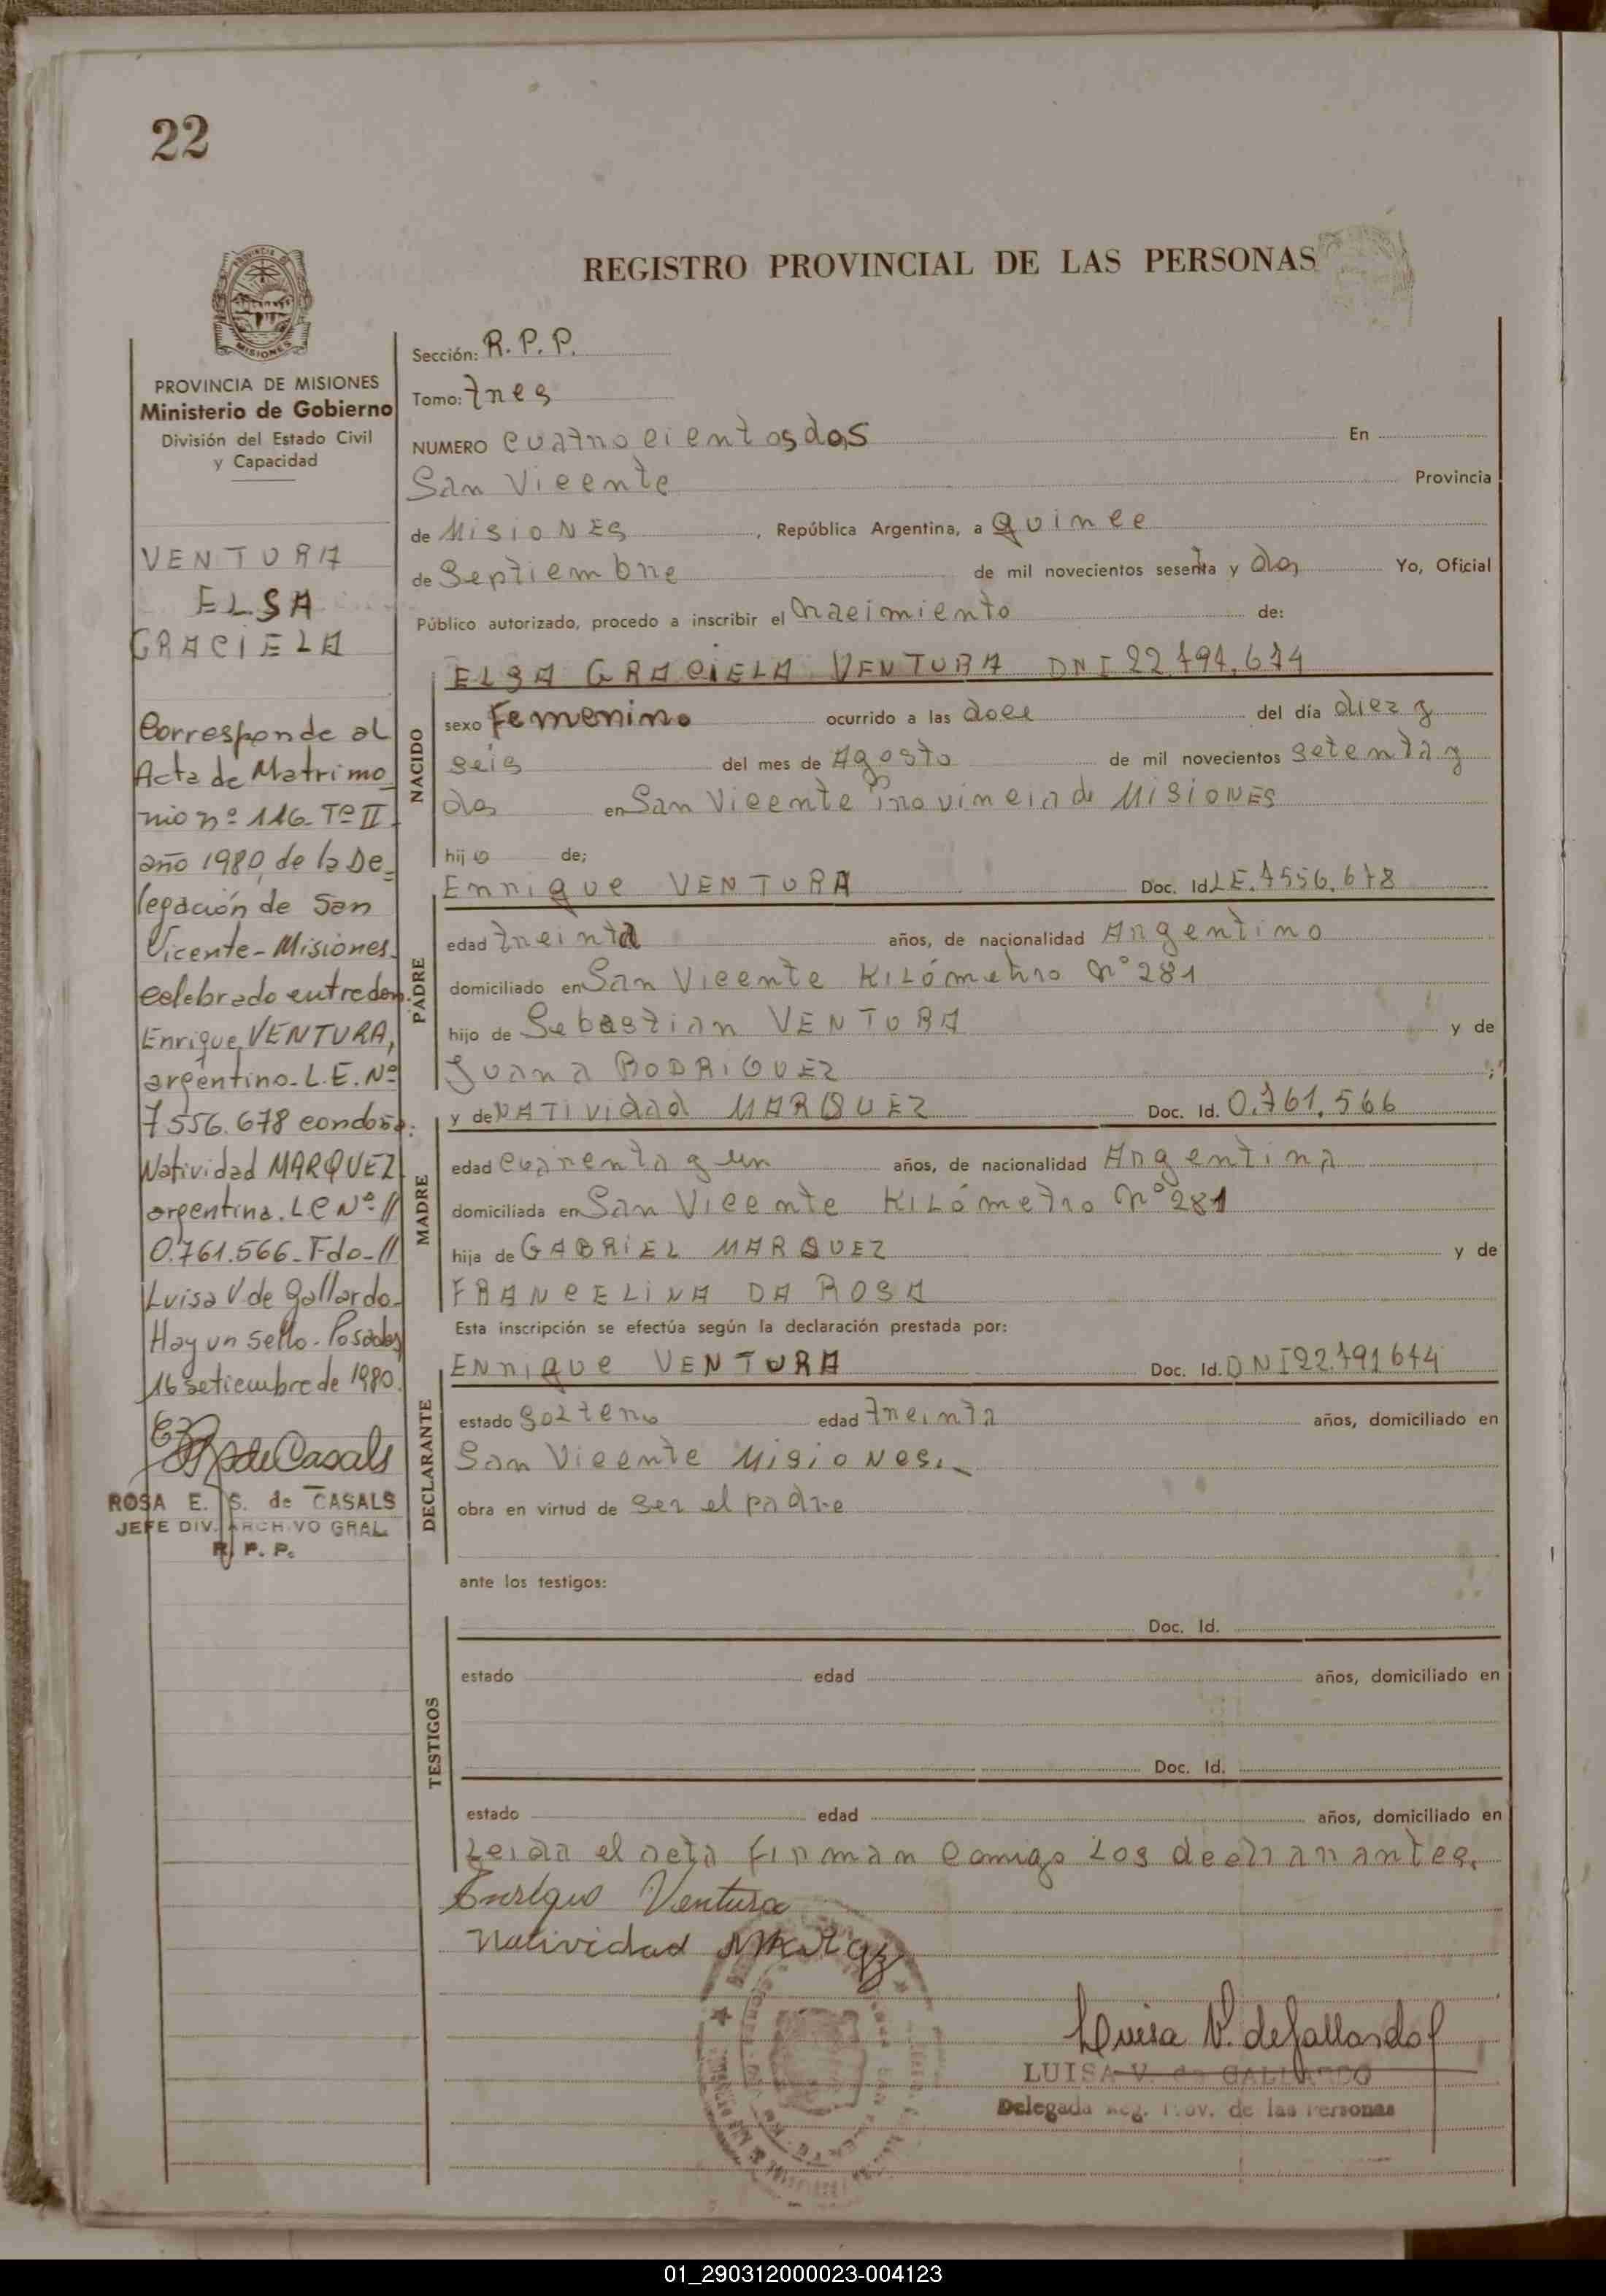 22
REGISTRO PROVINCIAL DE LAS PERSONAS
MISIONES
PROVINCIA DE MISIONES
Ministerio de Gobierno
División del Estado Civil
y Capacidad
VENTURA
ELSA
GRACIELA
Corresponde al
Acta de Matrimo_
nio nº 116 Tº II
año 1980, de la De_
legación de San
Vicente - Misiones.
Celebrado entre don:
Enrique VENTURA,
argentino. L.E. Nº
7556.678 con doña:
Natividad MARQUEZ
argentina. LC Nº //
0.761.566 - Fdo - //
Luisa V de Gallardo.
Hay un sello - Posadas
16 setiembre de 1980.
de Casals
ROSA E. S. de CASALS
JEFE DIV. ARCHIVO GRAL.
R. P. P.
Sección: R. P. P.
Tomo: tres
NUMERO cuatrocientos dos En
San Vicente Provincia
de MISIONES , República Argentina, a quince
de Septiembre de mil novecientos sesenta y dos Yo, Oficial
Público autorizado, procedo a inscribir el nacimiento de:
NACIDO
ELSA GRACIELA VENTURA DNI
sexo Femenino ocurrido a las doce del día diez y
seis del mes de Agosto de mil novecientos setenta y
dos en San Vicente Provincia de MISIONES
hij de;
PADRE
Enrique VENTURA Doc. Id. LE. 7556.678
edad treinta años, de nacionalidad Argentino
domiciliado en San Vicente KILómetro Nº 281
hijo de Sebastian VENTURA y de
Juana RODRIGUEZ ;
MADRE
y de NATIVIdad MARQUEZ Doc. Id. 0.761.566
edad cuarenta y un años, de nacionalidad Argentina
domiciliada en San Vicente KILómetro Nº 281
hija de GABRIEL MARQUEZ y de
FRANCELINA DA ROSA
Esta inscripción se efectúa según la declaración prestada por:
DECLARANTE
Enrique VENTURA Doc. Id. DNI
estado Soltero edad treinta años, domiciliado en
San Vicente Misiones.
obra en virtud de ser el padre
ante los testigos:
TESTIGOS
Doc. Id.
estado edad años, domiciliado en
Doc. Id.
estado edad años, domiciliado en
Leida el acta firman comigo Los declarantes.
Enrique Ventura
Natividad
Luisa V. de Gallardo
LUISA V. de GALLARDO
Delegada Reg. Prov. de las Personas
01_290312000023-004123